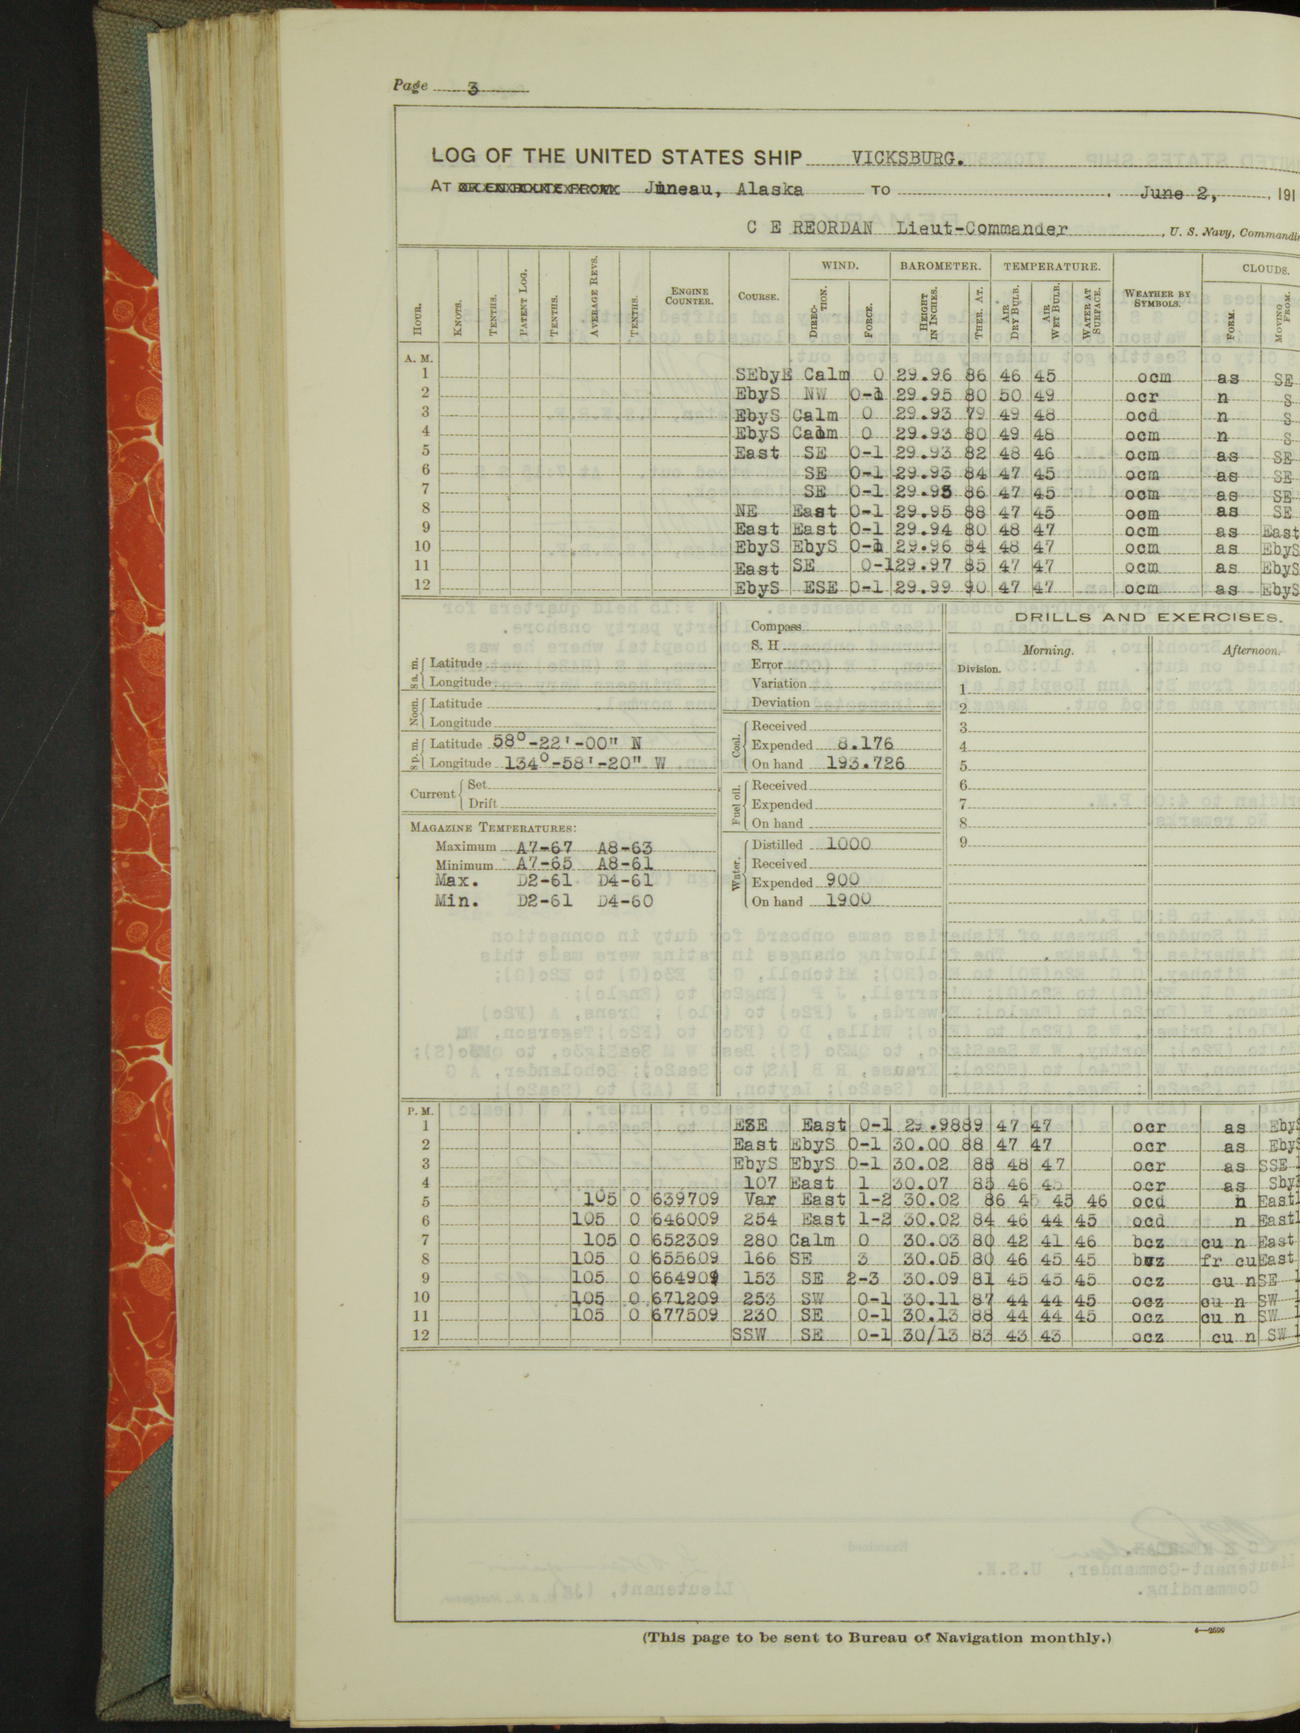 Page 3
LOG OF THE UNITED STATES SHIP VICKSBURG.
AT Juneau, Alaska TO , June 2, 191
C E REORDAN Lieut-Commander , U. S. Navy, Commandi
WIND. BAROMETER. TEMPERATURE. CLOUDS.
HOUR. KNOTS. TENTHS. PATENT LOG. TENTHS. AVERAGE REVS. TENTHS. ENGINE COUNTER. COURSE. DIREC-TION. FORCE. HEIGHT IN INCHES. THER. AT. AIR DRY BULB. AIR WET BULB. WATER AT SURFACE. WEATHER BY SYMBOLS. FORM. MOVING FROM.
A. M.
1 SEbyE Calm 0 29.96 86 46 45 ocm as SE
2 EbyS NW 0-1 29.95 80 50 49 ocr n S
3 EbyS Calm 0 29.93 79 49 48 ocd n S
4 EbyS Calm 0 29.93 80 49 48 ocm n S
5 East SE 0-1 29.93 82 48 46 ocm as SE
6 SE 0-1 29.93 84 47 45 ocm as SE
7 SE 0-1 29.95 86 47 45 ocm as SE
8 NE East 0-1 29.95 88 47 45 ocm as SE
9 East East 0-1 29.94 80 48 47 ocm as East
10 EbyS EbyS 0-1 29.96 84 48 47 ocm as EbyS
11 East SE 0-1 29.97 85 47 47 ocm as EbyS
12 EbyS ESE 0-1 29.99 90 47 47 ocm as EbyS
8 a. m. Latitude
Longitude
Noon. Latitude
Longitude
8 p. m. Latitude 58°-22'-00" N
Longitude 134°-58'-20" W
Current Set
Drift
MAGAZINE TEMPERATURES:
Maximum A7-67 A8-63
Minimum A7-65 A8-61
Max. D2-61 D4-61
Min. D2-61 D4-60
Compass
S. H
Error
Variation
Deviation
Coal. Received
Expended 8.176
On hand 193.726
Fuel oil. Received
Expended
On hand
Water. Distilled 1000
Received
Expended 900
On hand 1900
DRILLS AND EXERCISES.
Morning. Afternoon.
Division.
1
2
3
4
5
6
7
8
9
P. M.
1 ESE East 0-1 29.98 89 47 47 ocr as EbyS
2 East EbyS 0-1 30.00 88 47 47 ocr as EbyS
3 EbyS EbyS 0-1 30.02 88 48 47 ocr as SSE
4 107 East 1 30.07 85 46 45 ocr as SbyE
5 105 0 639709 Var East 1-2 30.02 86 45 45 46 ocd n East
6 105 0 646009 254 East 1-2 30.02 84 46 44 45 ocd n East
7 105 0 652309 280 Calm 0 30.03 80 42 41 46 bcz cu n East
8 105 0 655609 166 SE 3 30.05 80 46 45 45 fr cu East
9 105 0 664909 153 SE 2-3 30.09 81 45 45 45 ocz cu n SE
10 105 0 671209 253 SW 0-1 30.11 87 44 44 45 ocz cu n SW
11 105 0 677509 230 SE 0-1 30.13 88 44 44 45 ocz cu n SW
12 SSW SE 0-1 30/13 83 43 43 ocz cu n SW
(This page to be sent to Bureau of Navigation monthly.)